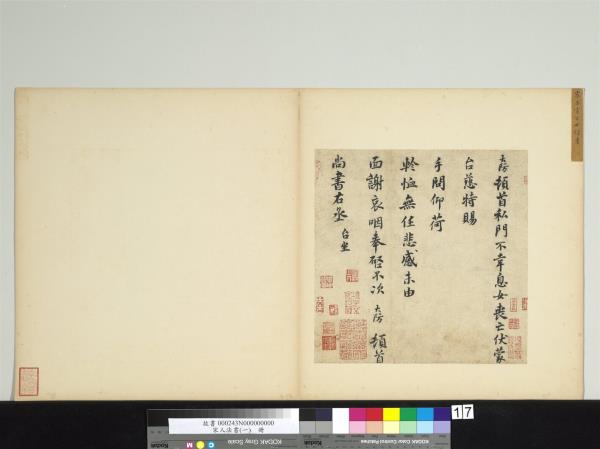 大防頓首私門不幸息女喪亡伏蒙
台慈特賜
手問仰荷
軫恤無任悲感未由
面謝哀咽奉啓不次 大防 頓首
尚書右丞 台坐
故書 000243N000000000
宋人法書(一) 冊
17
Kodak
KODAK Gray Scale
KODAK Color Control Patches
C
Y
M